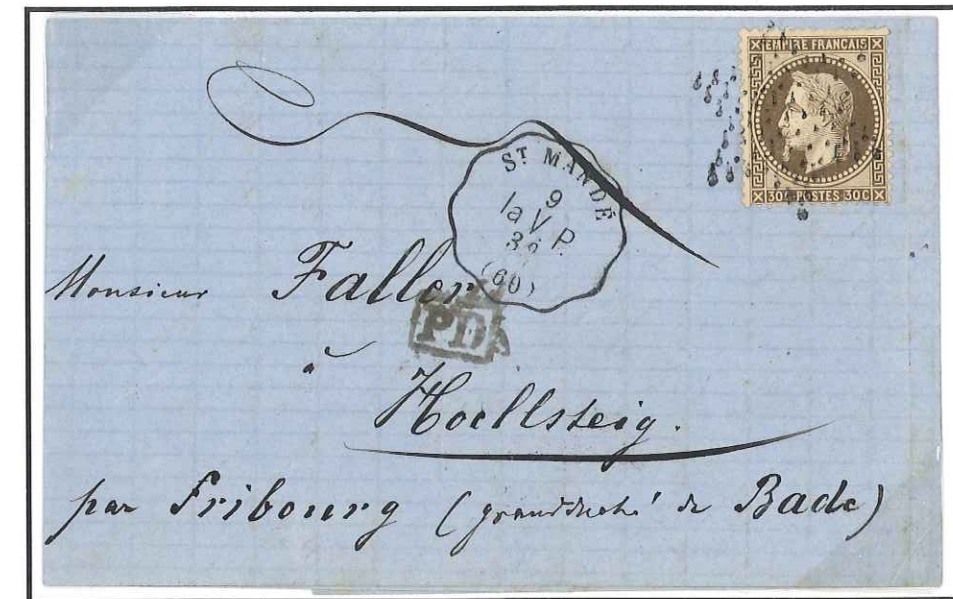 EMPIRE FRANÇAIS
30C POSTES 30C
ST MANDÉ
9
la V P.
36
(60)
Monsieur Faller
PD
à
Hoellsteig.
par Fribourg (grandduché de Bade)